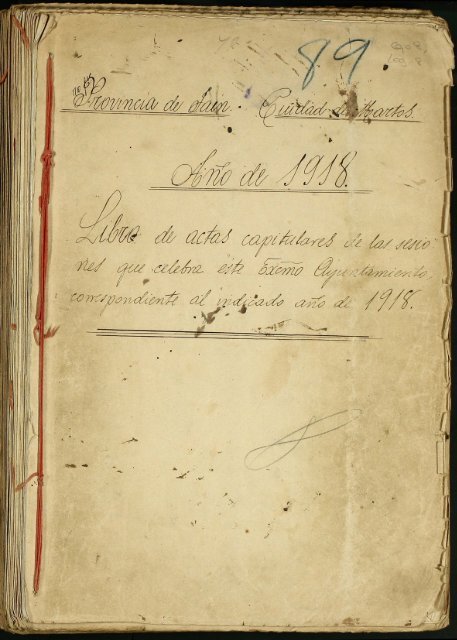 89
Provincia de Jaén. Ciudad de Martos.
Año de 1918.
Libro de actas capitulares de las sesio
nes que celebra este Exmo Ayuntamiento,
correspondiente al indicado año de 1918.